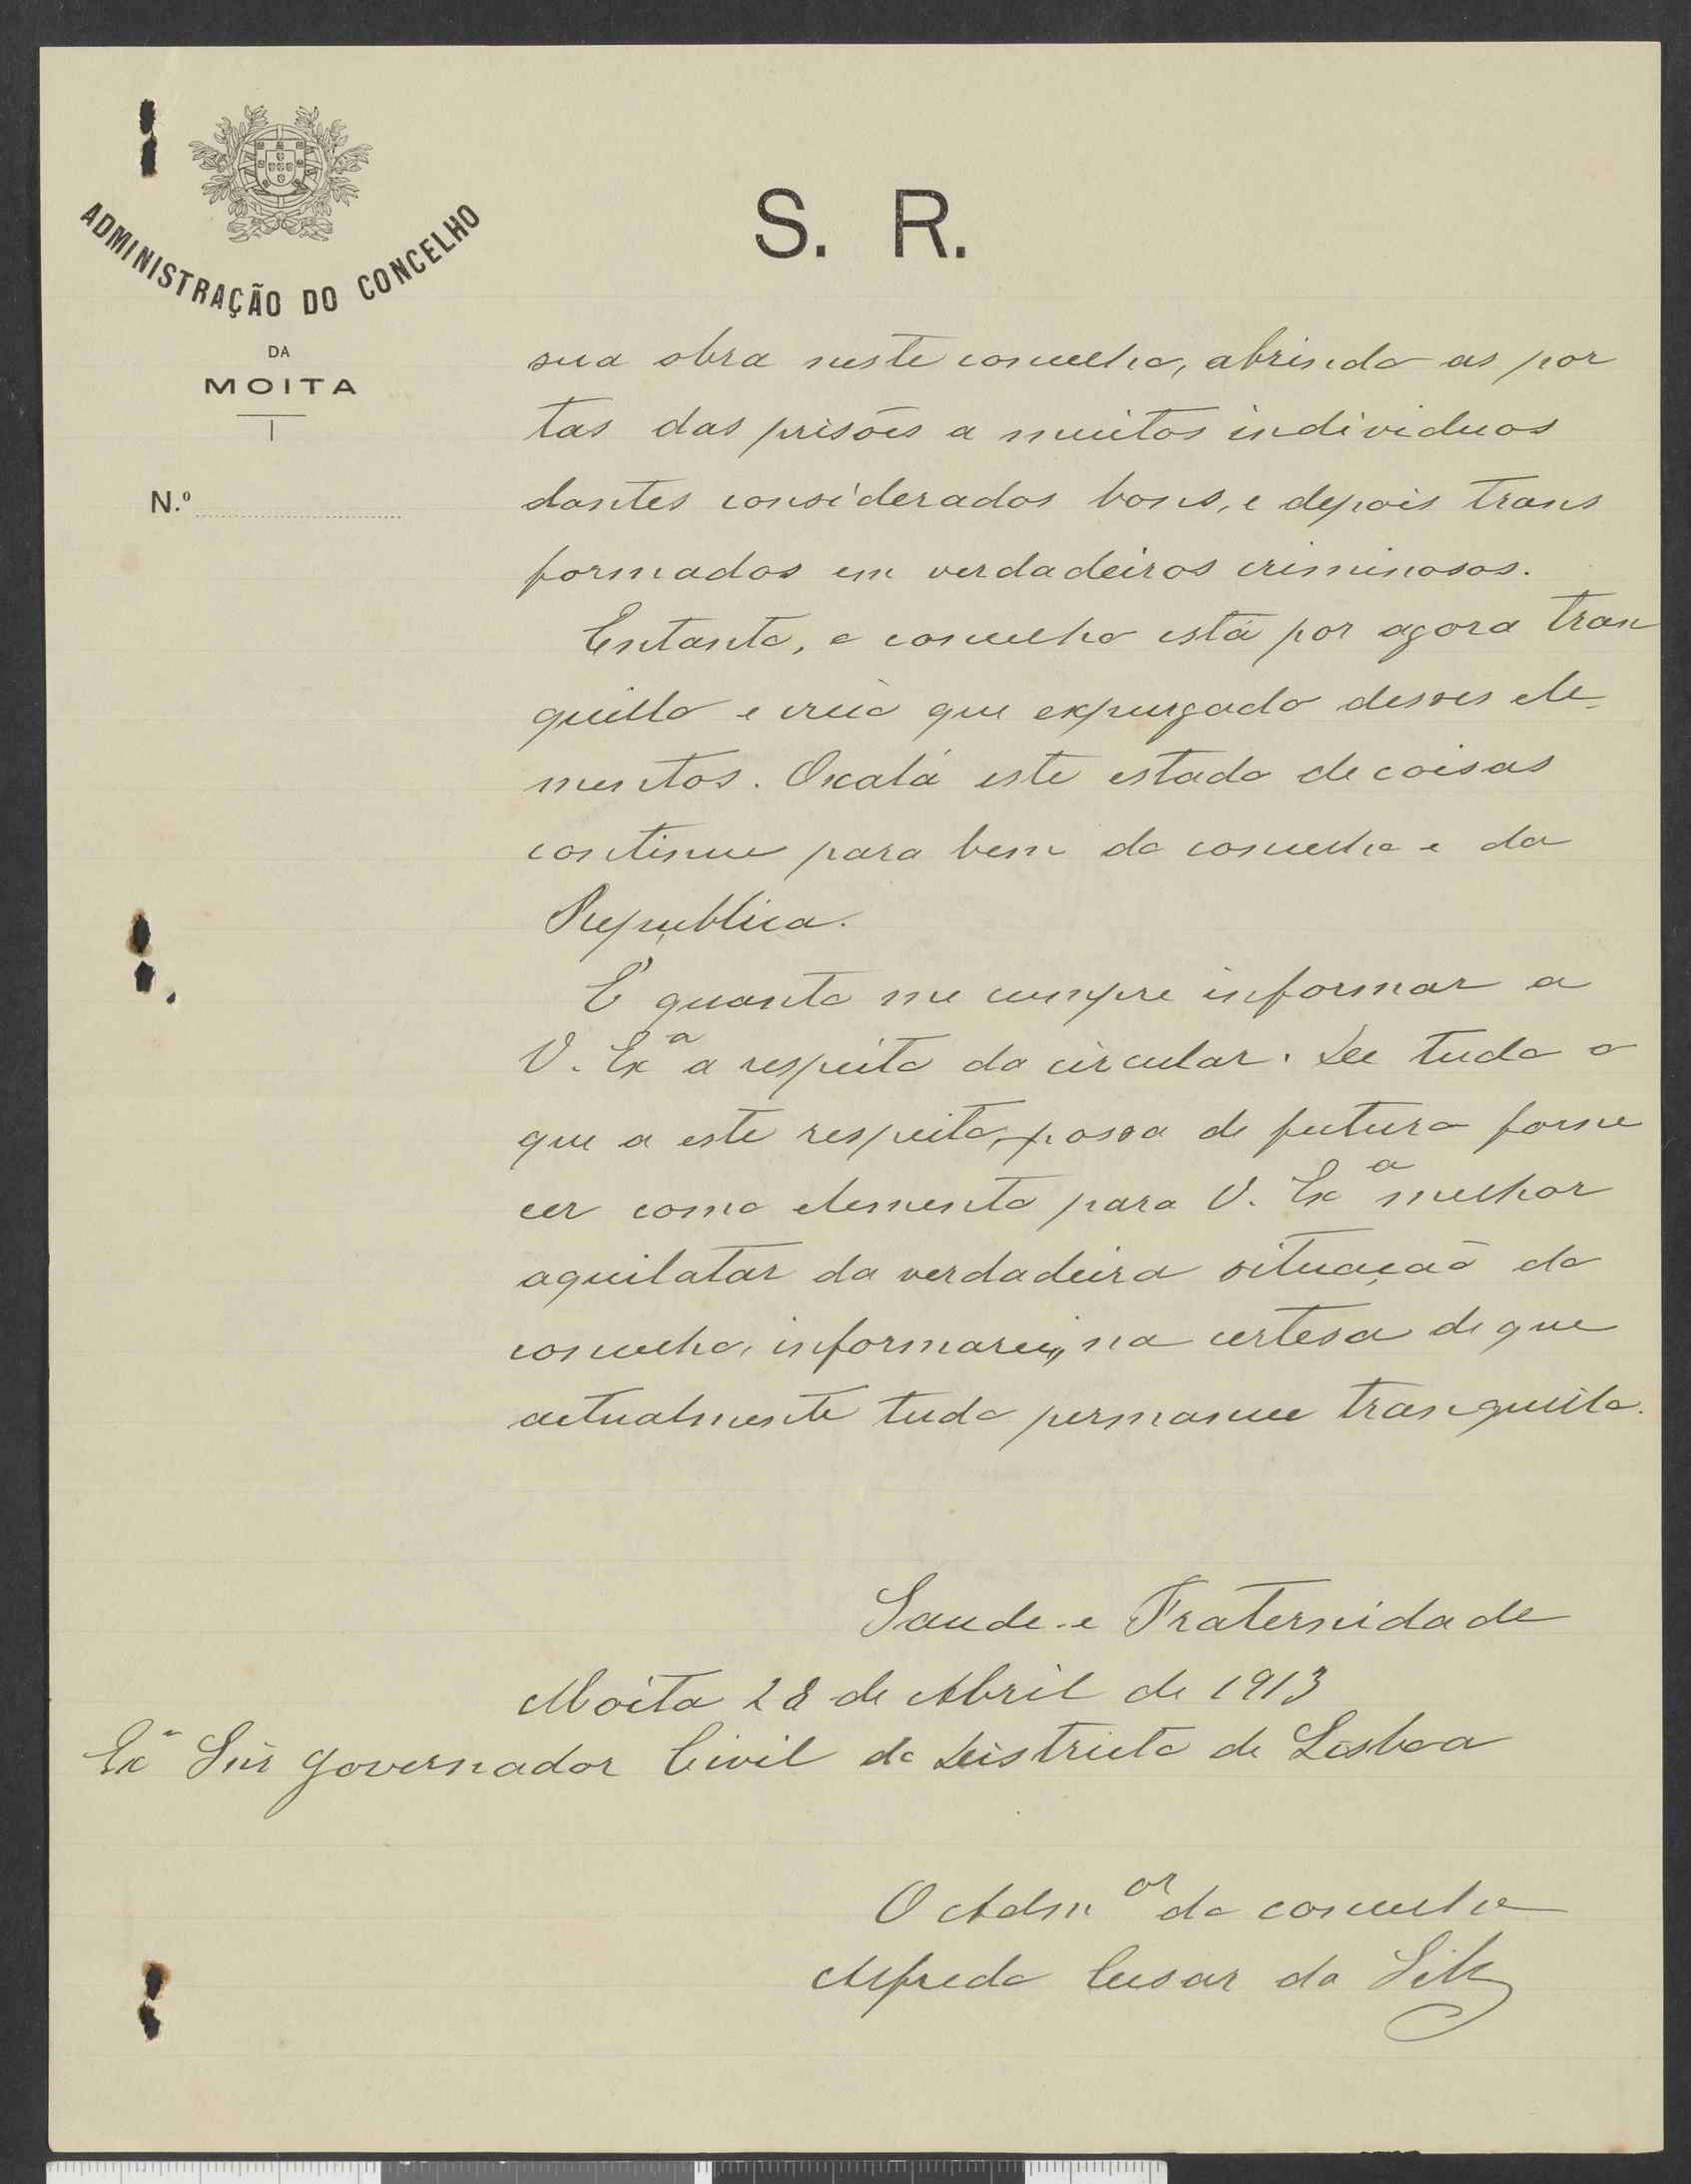 ADMINISTRAÇÃO DO CONCELHO
DA
MOITA
N.º
S. R.
sua obra neste concelho, abrindo as por
tas das prisões a muitos individuos
dantes considerados bons, e depois trans
formados em verdadeiros criminosos.
Entanto, o concelho está por agora tran
quillo e creio que expurgado desses ele-
mentos. Oxalá este estado de coisas
continue para bem do concelho e da
Republica.
É quanto me cumpre informar a
V. Exª a respeito da circular. De tudo o
que a este respeito, possa de futuro forne
cer como elemento para V. Exª melhor
aquilatar da verdadeira situação do
concelho, informarei, na certesa de que
actualmente tudo permanece tranquilo.
Saude e Fraternidade
Moita 28 de Abril de 1913
Exº Snr Governador Civil do Districto de Lisboa
O Admor do concelho
Alfredo Cesar da Silva